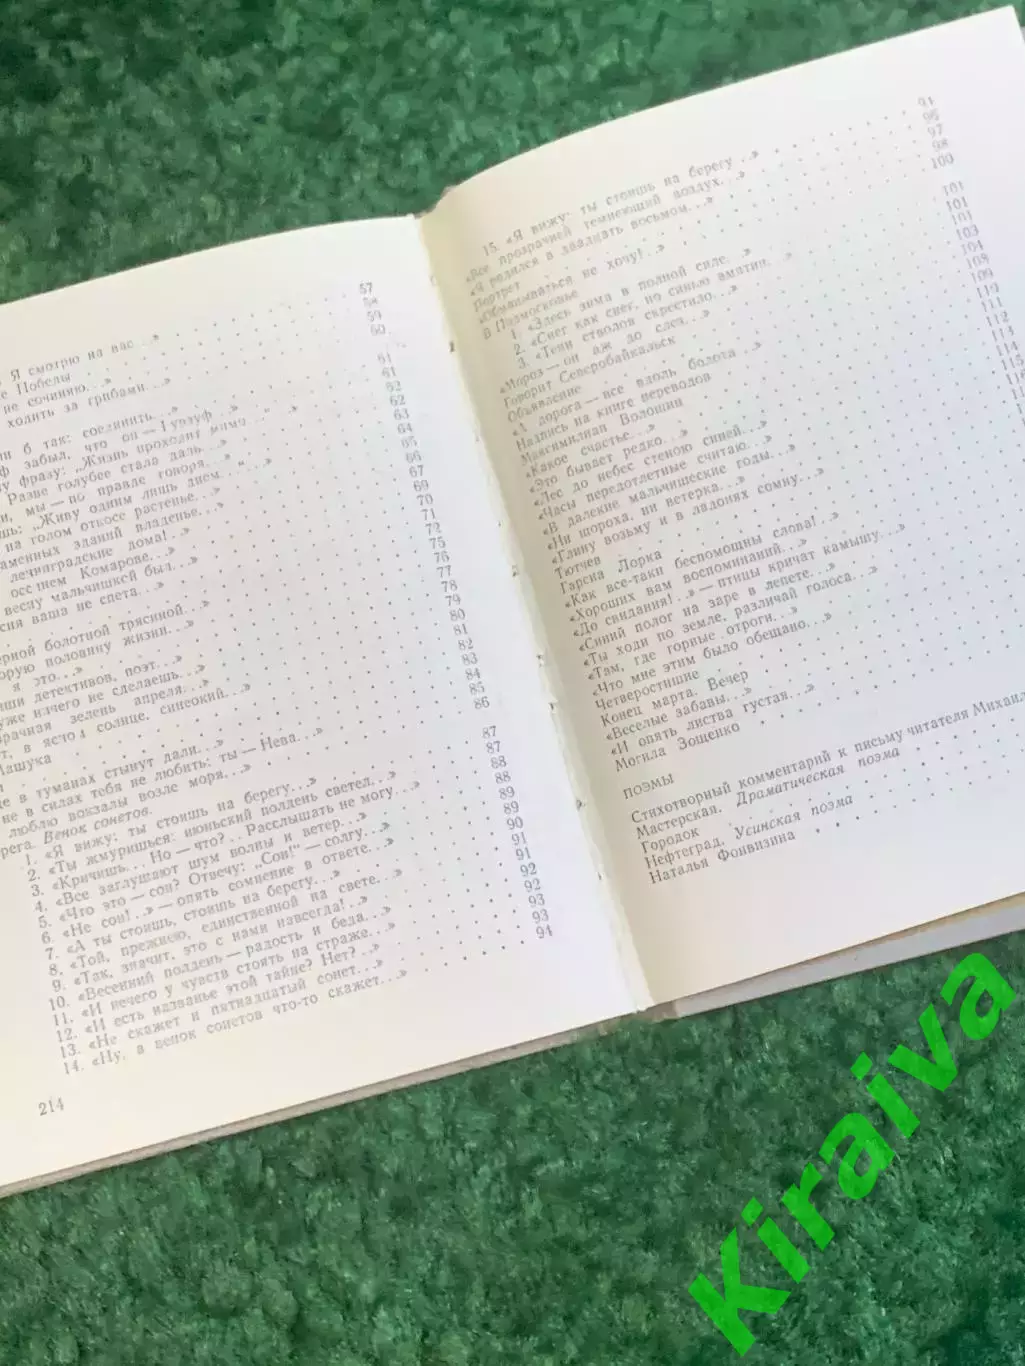 Я смотрю на вас...»
Победы
не сочиню...»
ходить за грибами...»
б так: соединить...»
забыл, что он — Гурзуф...»
фразу: „Жизнь проходит мимо..."»
Разве голубее стала даль...»
мы — по правде говоря...»
„Живу одним лишь днем..."»
на голом откосе растенье...»
зданий владенье...»
ленинградские дома!..»
Комарове...»
весну мальчишкой был...»
ваша не спета...»
болотной трясиной...»
половину жизни...»
я это...»
детективов, поэт...»
уже ничего не сделаешь...»
зелень апреля...»
в солнце, синеокий...»
Машука
в туманах стынут дали...»
не в силах тебя не любить: ты — Нева...»
люблю вокзалы возле моря...»
Венок сонетов.
1. «Я вижу: ты стоишь на берегу...»
2. «Ты жмуришься: июньский полдень светел...»
3. «Кричишь... Но — что?.. Расслышать не могу...»
4. «Все заглушают шум волны и ветер...»
5. «Что это — сон? Отвечу: „Сон!" — солгу...»
6. «Не сон!..» — опять сомнение в ответе...»
7. «А ты стоишь, стоишь на берегу...»
8. «Той, прежнею, единственной на свете...»
9. «Так, значит, это с нами навсегда!..»
10. «Весенний полдень — радость и беда...»
11. «И нечего у чувств стоять на страже...»
12. «И есть названье этой тайне? Нет?..»
13. «Не скажет и пятнадцатый сонет...»
14. «Ну, а венок сонетов что-то скажет...»
57
58
59
60
61
61
62
62
63
64
65
66
67
69
70
71
72
75
76
77
78
79
80
81
82
83
84
85
86
87
87
88
88
89
89
90
91
91
92
92
93
93
94
214
15. «Я вижу: ты стоишь на берегу...»
«Все прозрачней темнеющий воздух...»
«Я родился в двадцать восьмом...»
Портрет
«Обманываться не хочу!..»
В Подмосковье
1. «Здесь зима в полной силе...»
2. «Снег как снег, но синью вмятин...»
3. «Тени стволов скрестило...»
«Мороз — он аж до слез...»
Говорит Северобайкальск
Объявление
«А дорога — все вдоль болота...»
Надпись на книге переводов
Максимилиан Волошин
«Какое счастье...»
«Это бывает редко...»
«Лес до небес стеною синей...»
«Часы передотлетные считаю...»
«В далекие мальчишеские годы...»
«Ни шороха, ни ветерка...»
«Глину возьму и в ладонях сомну...»
Тютчев
Гарсиа Лорка
«Как все-таки беспомощны слова!..»
«Хороших вам воспоминаний...»
«До свидания!..» — птицы кричат камышу...»
«Синий полог на заре в лепете...»
«Ты ходи по земле, различай голоса...»
«Там, где горные отроги...»
«Что мне этим было обещано...»
Четверостишие
Конец марта. Вечер
«Веселые забавы...»
«И опять листва густая...»
Могила Зощенко
94
96
97
98
100
101
101
101
103
104
108
109
110
111
112
113
114
115
ПОЭМЫ
Стихотворный комментарий к письму читателя
Мастерская. Драматическая поэма
Городок
Нефтеград. Усинская поэма
Наталья Фонвизина
Kiraiva